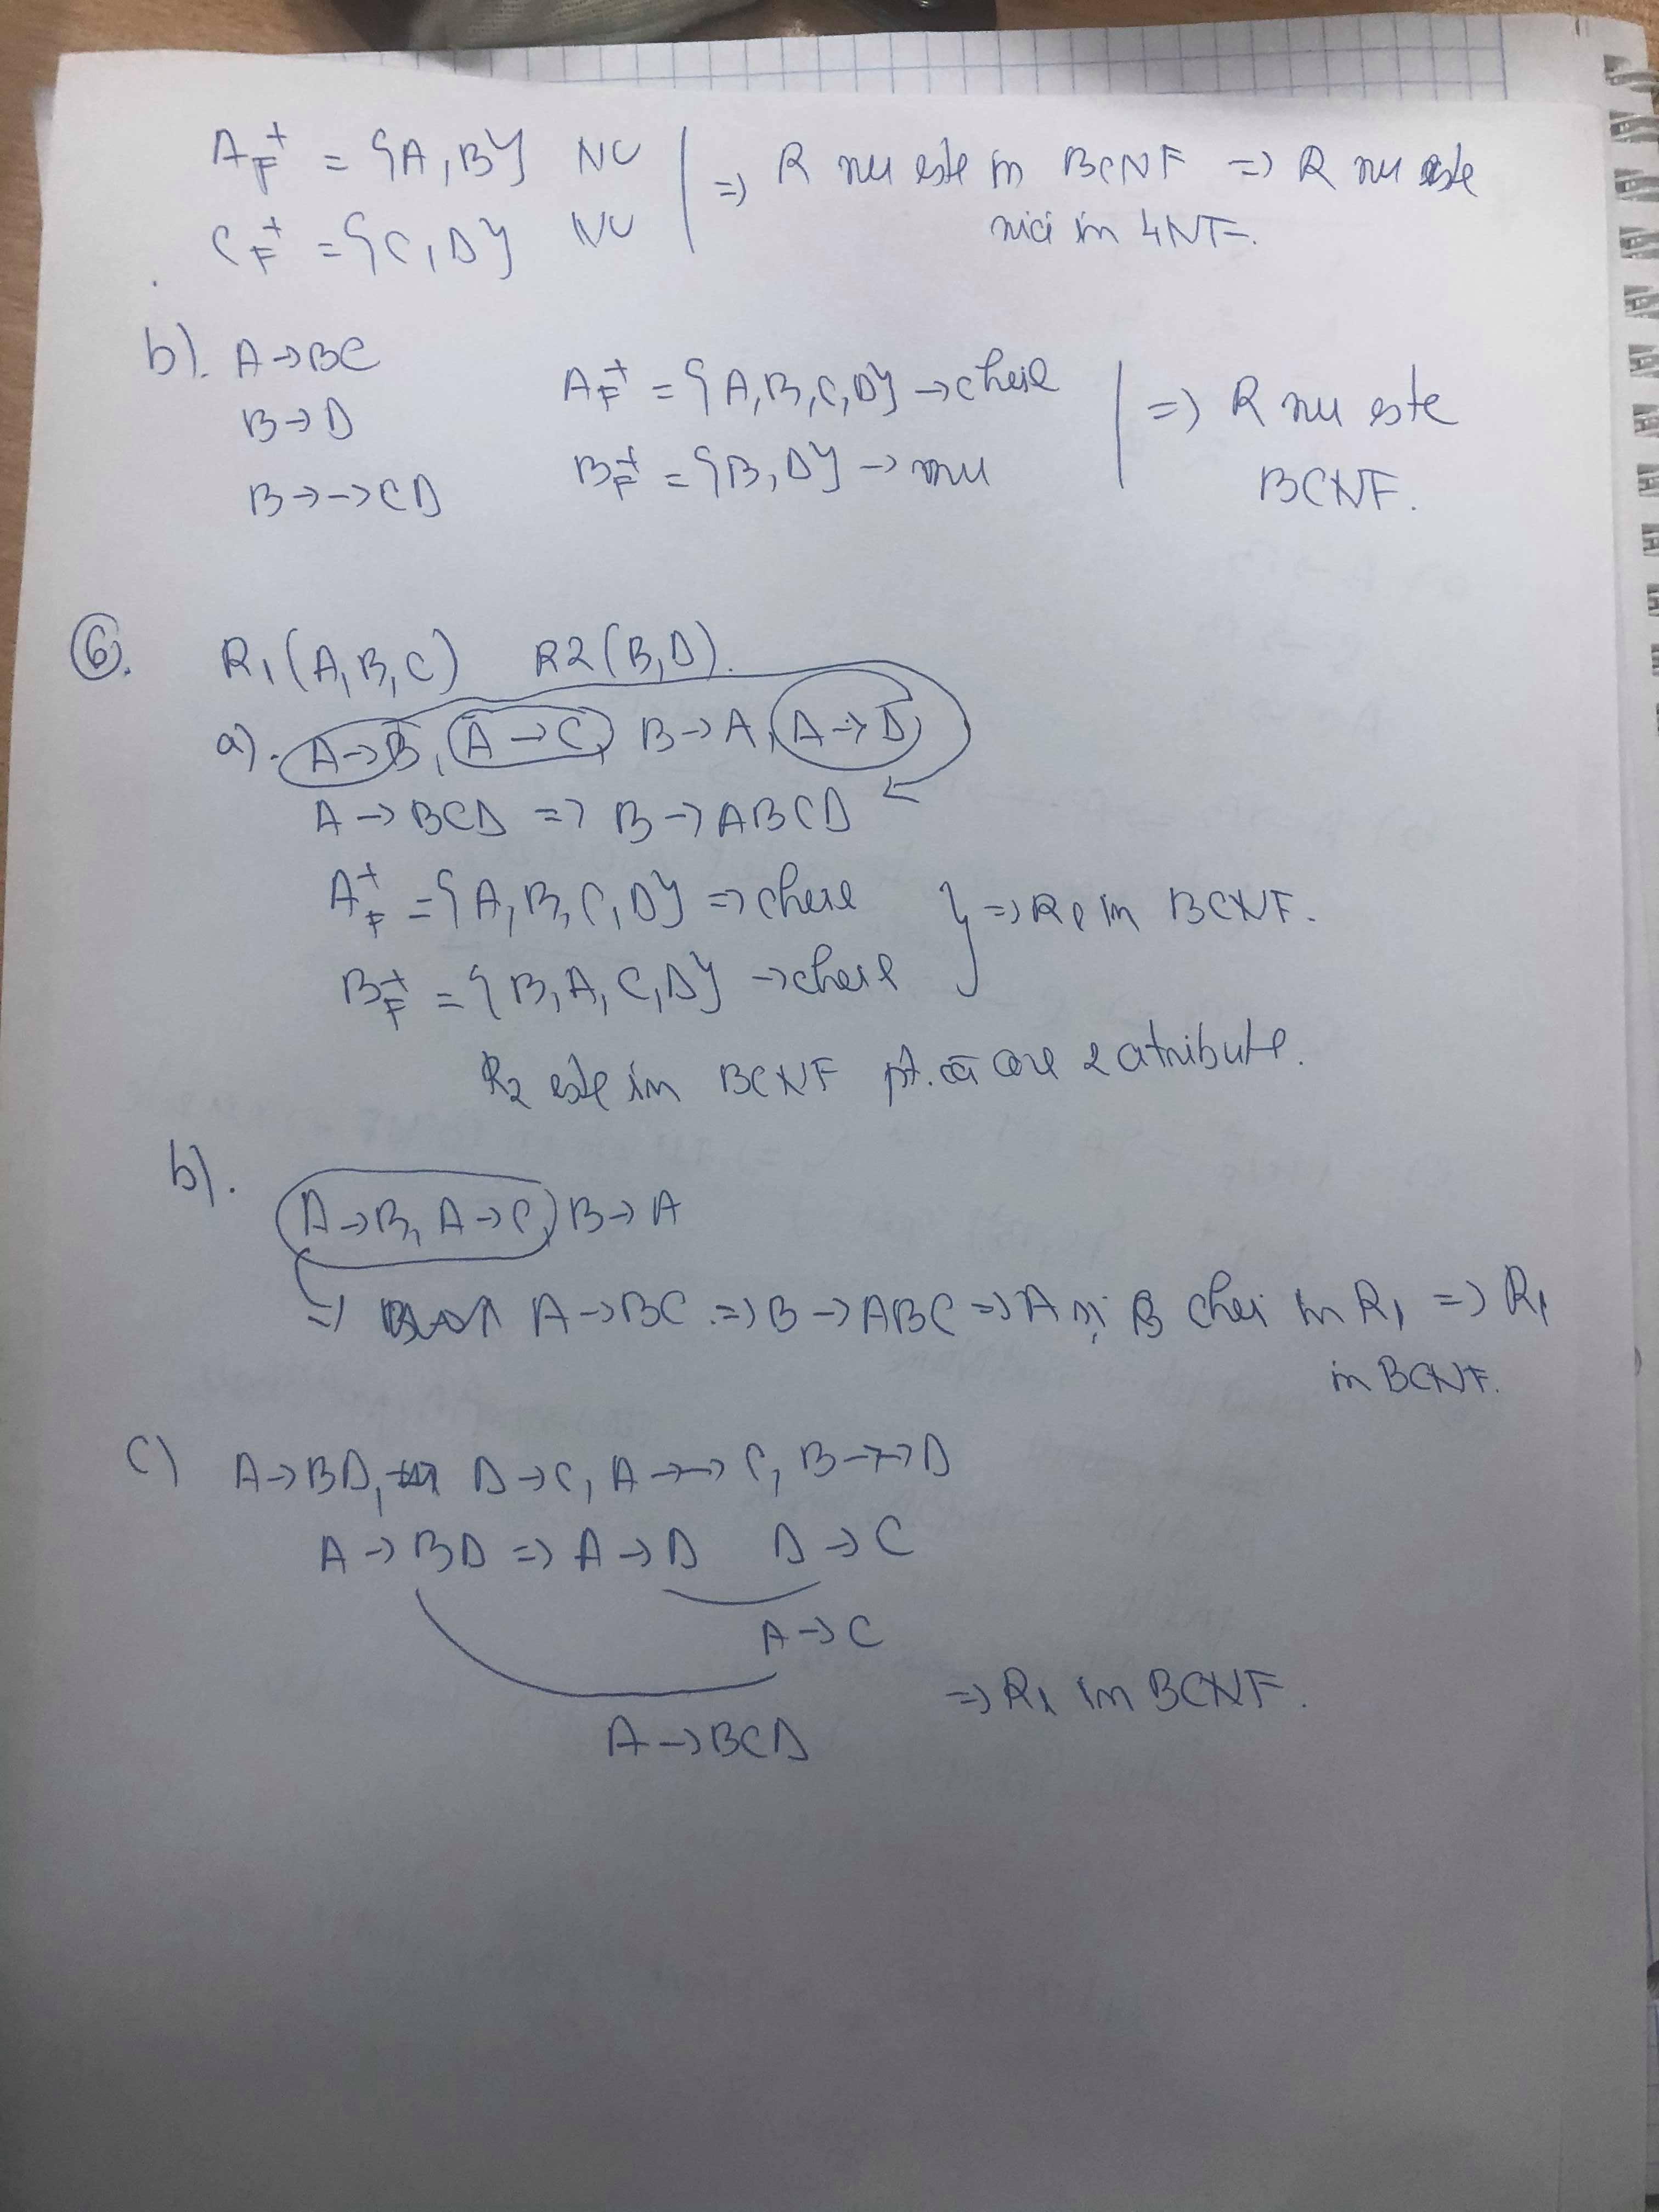 A_F^+ = {A, B} NU
C_F^+ = {C, D} NU
=> R nu este in BCNF => R nu este
nici in 4NF.
b). A→BC
B→D
B→→CD
A_F^+ = {A,B,C,D} → cheie
B_F^+ = {B, D} → nu
=> R nu este
BCNF.
6. R1(A,B,C) R2(B,D).
a). A→B, A→C, B→A, A→D,
A→BCD => B→ABCD
A_F^+ = {A, B, C, D} => cheie
B_F^+ = {B, A, C, D} → cheie
=> R1 in BCNF.
R2 este in BCNF pt. că are 2 atribute.
b).
A→B, A→C, B→A
=> A→BC => B→ABC => A și B chei in R1 => R1
in BCNF.
c) A→BD, D→C, A→→C, B→→D
A→BD => A→D D→C
A→C
=> R1 in BCNF.
A→BCD